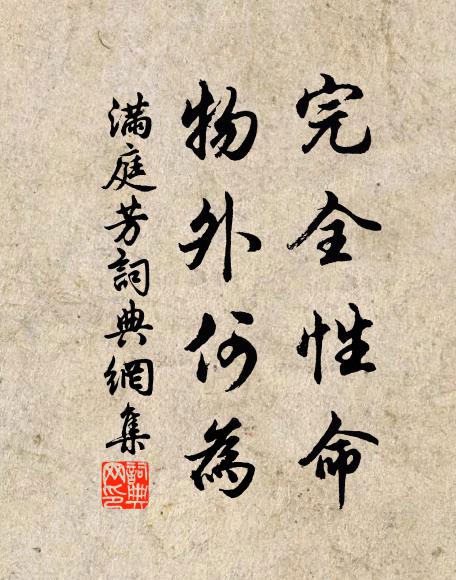 完全性命
物外何為
滿庭芳詞典網集
詞典網印